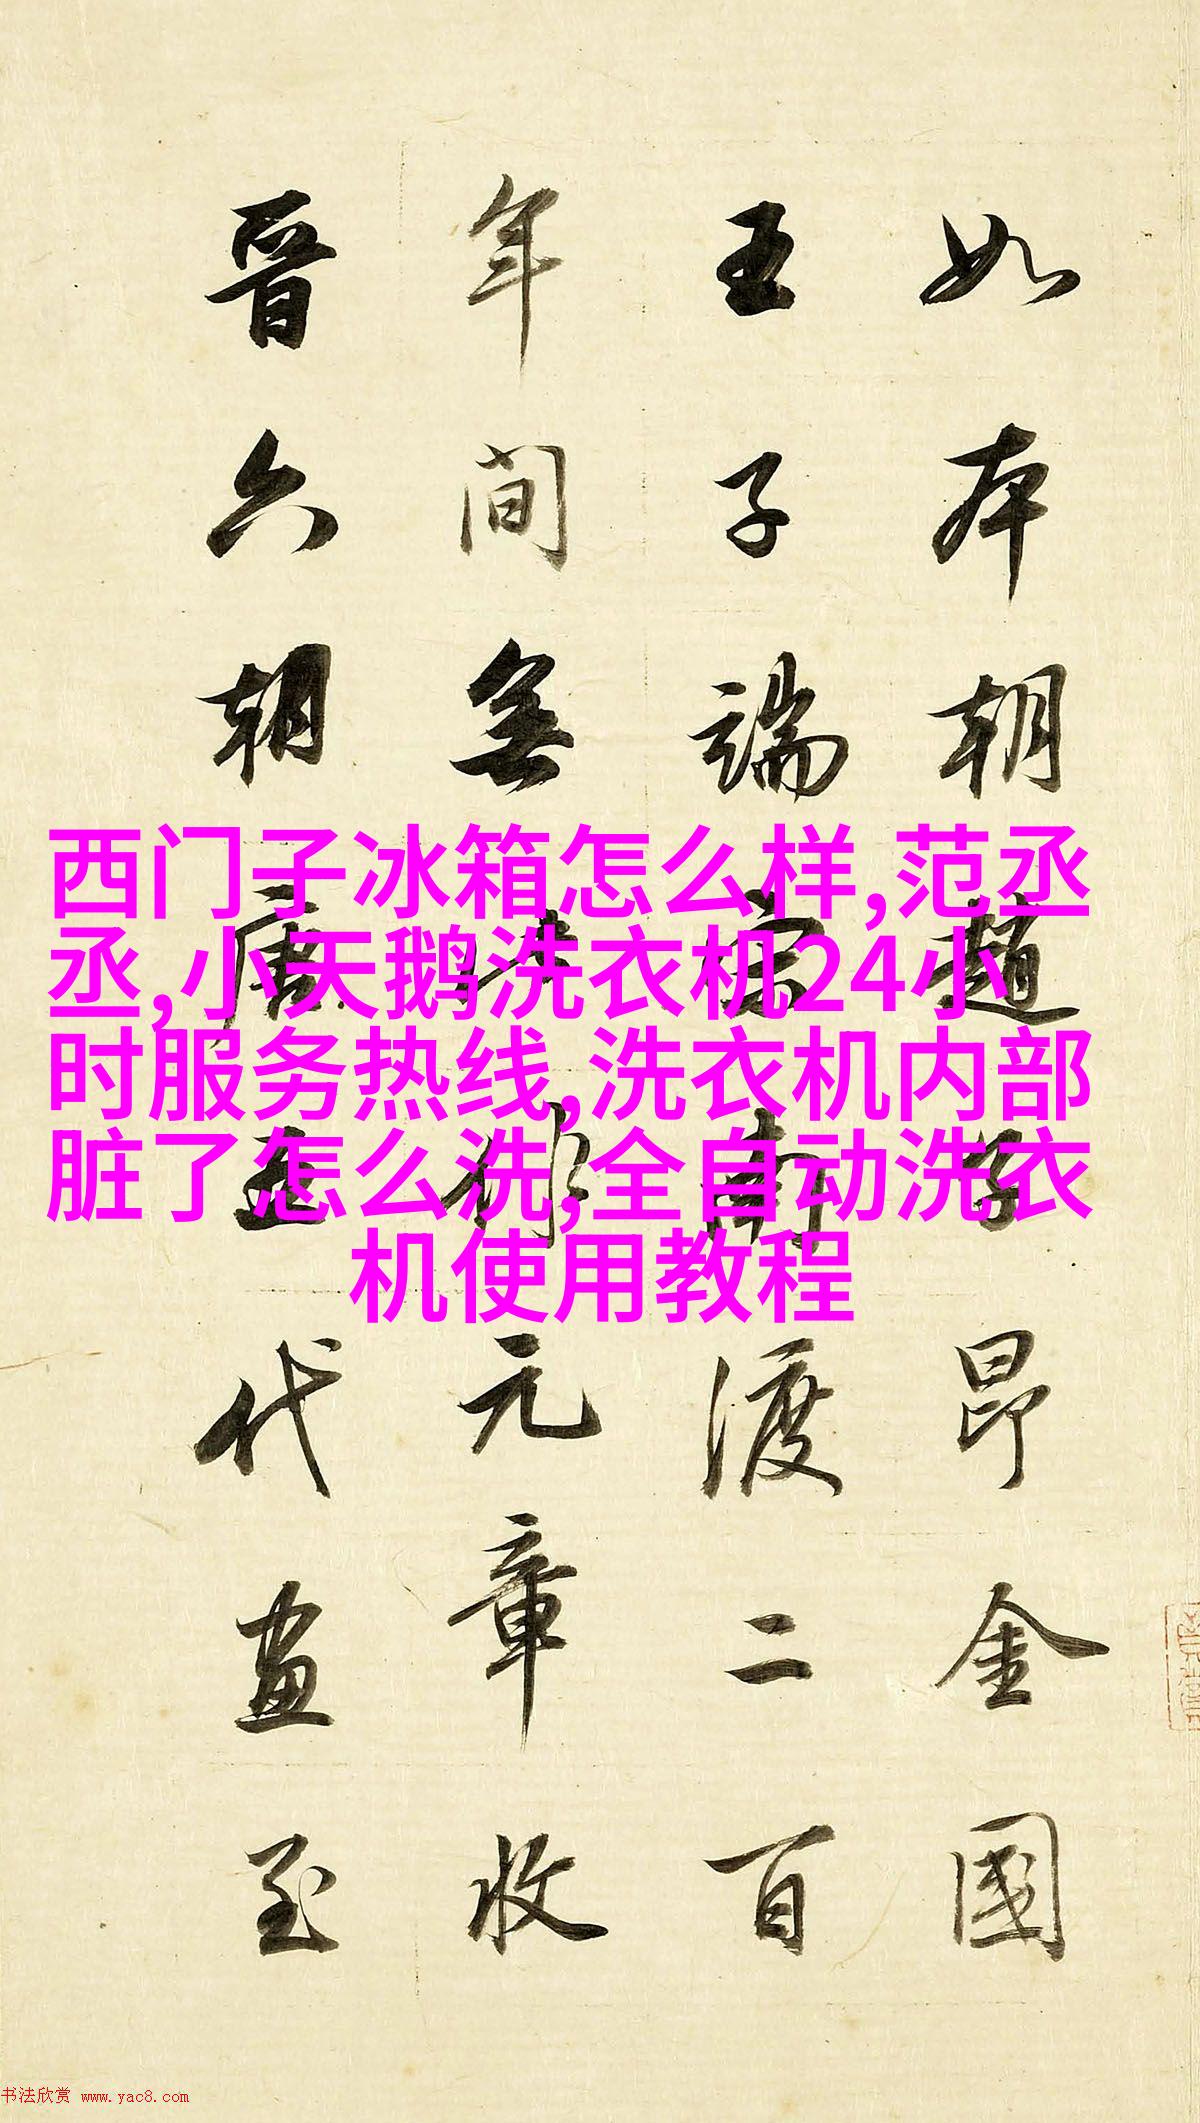 如本朝趙子昂金國
王子端宋南渡二百
年間無元章收
晉六朝唐五代畫至
西门子冰箱怎么样,范丞
丞,小天鹅洗衣机24小
时服务热线,洗衣机内部
脏了怎么洗,全自动洗衣
机使用教程
书法欣赏 www.yac8.com